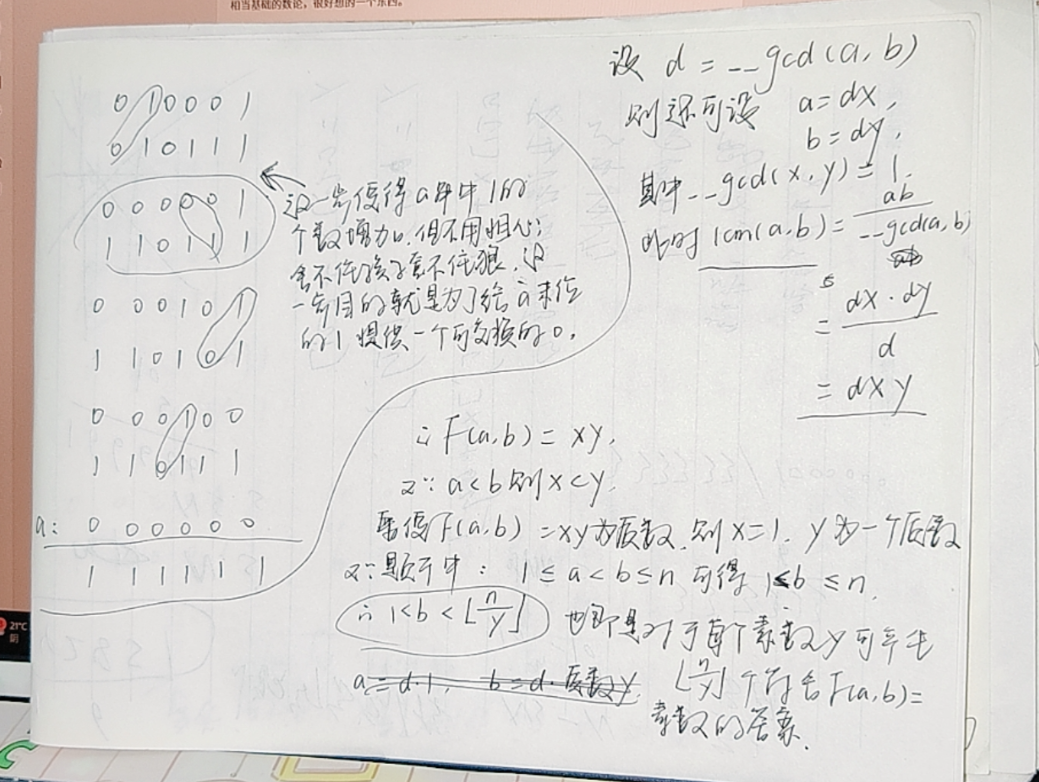 相当基础的数论，很好想的一个东西。
0 1 0 0 0 1
0 1 0 1 1 1
0 0 0 0 0 1
1 1 0 1 1 1
0 0 0 1 0 1
1 1 0 1 0 1
0 0 0 1 0 0
1 1 0 1 1 1
a: 0 0 0 0 0 0
1 1 1 1 1 1
这一步使得a串中1的
个数增加。但不用担心；
舍不得孩子套不住狼，这
一步目的就是为了给a末位
的1提供一个可交换的0。
设 d = __gcd(a,b)
则还可设 a=dx,
b=dy,
其中__gcd(x,y)=1.
此时 lcm(a,b) = ab / __gcd(a,b)
= dx·dy / d
= dxy
∴ F(a,b) = xy,
又∵ a<b 则 x<y,
要使F(a,b) = xy为质数,则x=1, y为一个质数
又∵题干中: 1≤a<b≤n 可得 1≤b≤n,
∴ 1<b<⌊n/y⌋ 也即是对于每个素数y可产生
a=d·1, b=d·质数y,
⌊n/y⌋个符合F(a,b)=
素数的答案.
21℃
阴